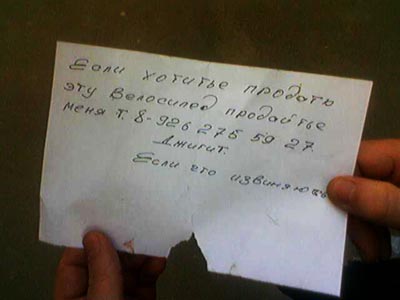 Если хотитье продать
эту велосипед продайтье
меня т. 8-926 275 59 27
Джигит.
Если что извиняюсь